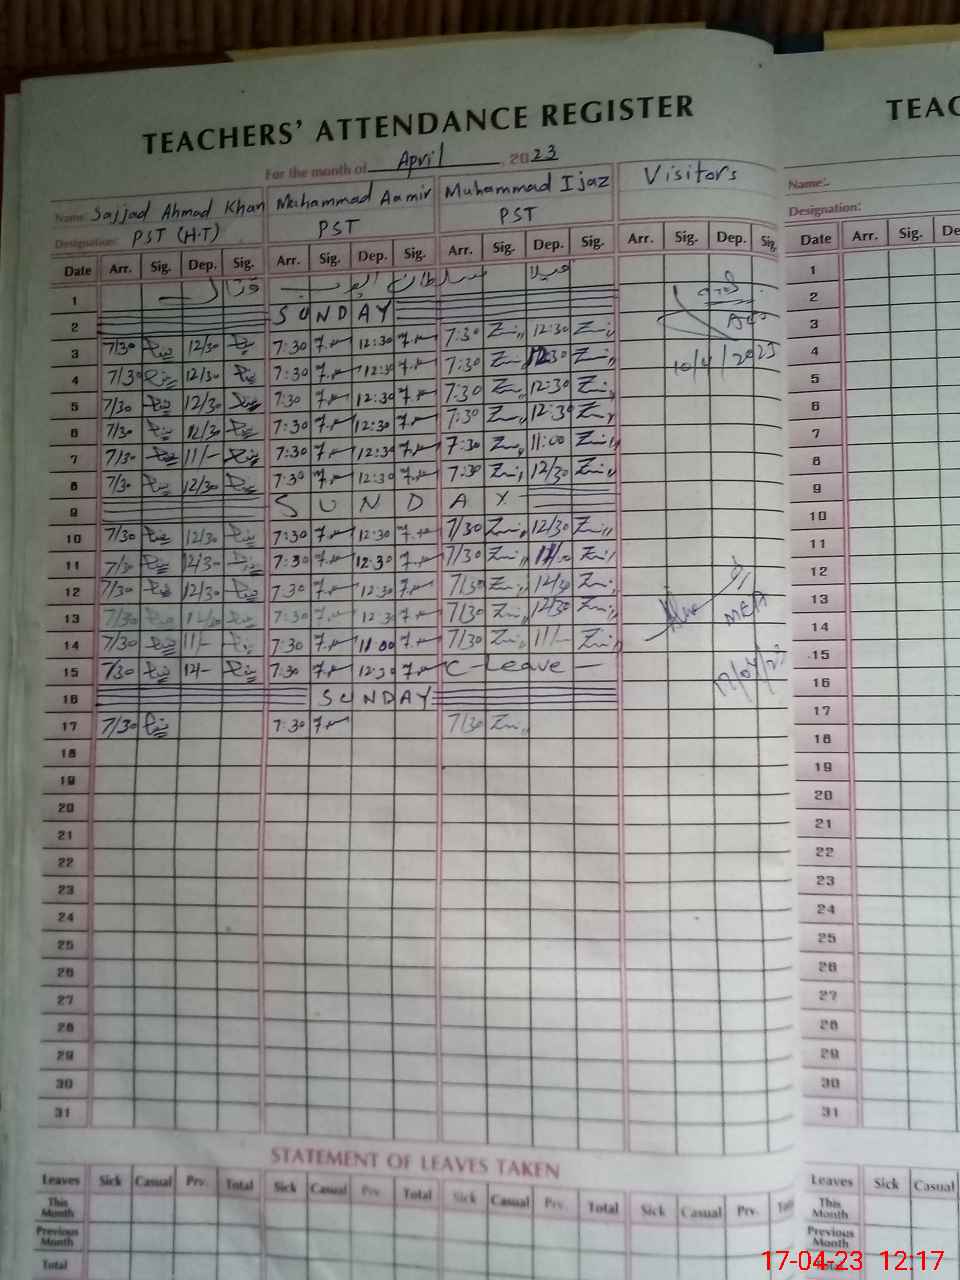 TEACHERS' ATTENDANCE REGISTER
For the month of April, 2023
Name: Sajjad Ahmad Khan Muhammad Aamir Muhammad Ijaz Visitors
Designation: PST (H.T) PST PST
Date Arr. Sig. Dep. Sig. Arr. Sig. Dep. Sig. Arr. Sig. Dep. Sig. Arr. Sig. Dep. Sig.
1
2 SUNDAY
3 7/30 12/30 7:30 12:30 7:30 12:30
4 7/30 12/30 7:30 12:30 7:30 12:30 10/4/2023
5 7/30 12/30 7:30 12:30 7:30 12:30
6 7/30 12/30 7:30 12:30 7:30 12:30
7 7/30 11/- 7:30 12:30 7:30 11:00
8 7/30 12/30 7:30 12:30 7:30 12/30
9 SUNDAY
10 7/30 12/30 7:30 12:30 7/30 12/30
11 7/30 12/30 7:30 12:30 7/30
12 7/30 12/30 7:30 12:30 7/30 12/30
13 7/30 12/30 7:30 12:30 7/30 12/30 MEA
14 7/30 11/- 7:30 11:00 7/30 11/-
15 7/30 7:30 12:30 C-Leave 17/04/23
16 SUNDAY
17 7/30 7:30 7/30
18
19
20
21
22
23
24
25
26
27
28
29
30
31
STATEMENT OF LEAVES TAKEN
Leaves Sick Casual Prv. Total Sick Casual Prv. Total Sick Casual Prv. Total Sick Casual Prv.
This Month
Previous Month
Total
TEAC
Name:
Designation:
Date Arr. Sig. De
1
2
3
4
5
6
7
8
9
10
11
12
13
14
15
16
17
18
19
20
21
22
23
24
25
26
27
28
29
30
31
Leaves Sick Casual
This Month
Previous Month
Total
17-04-23 12:17